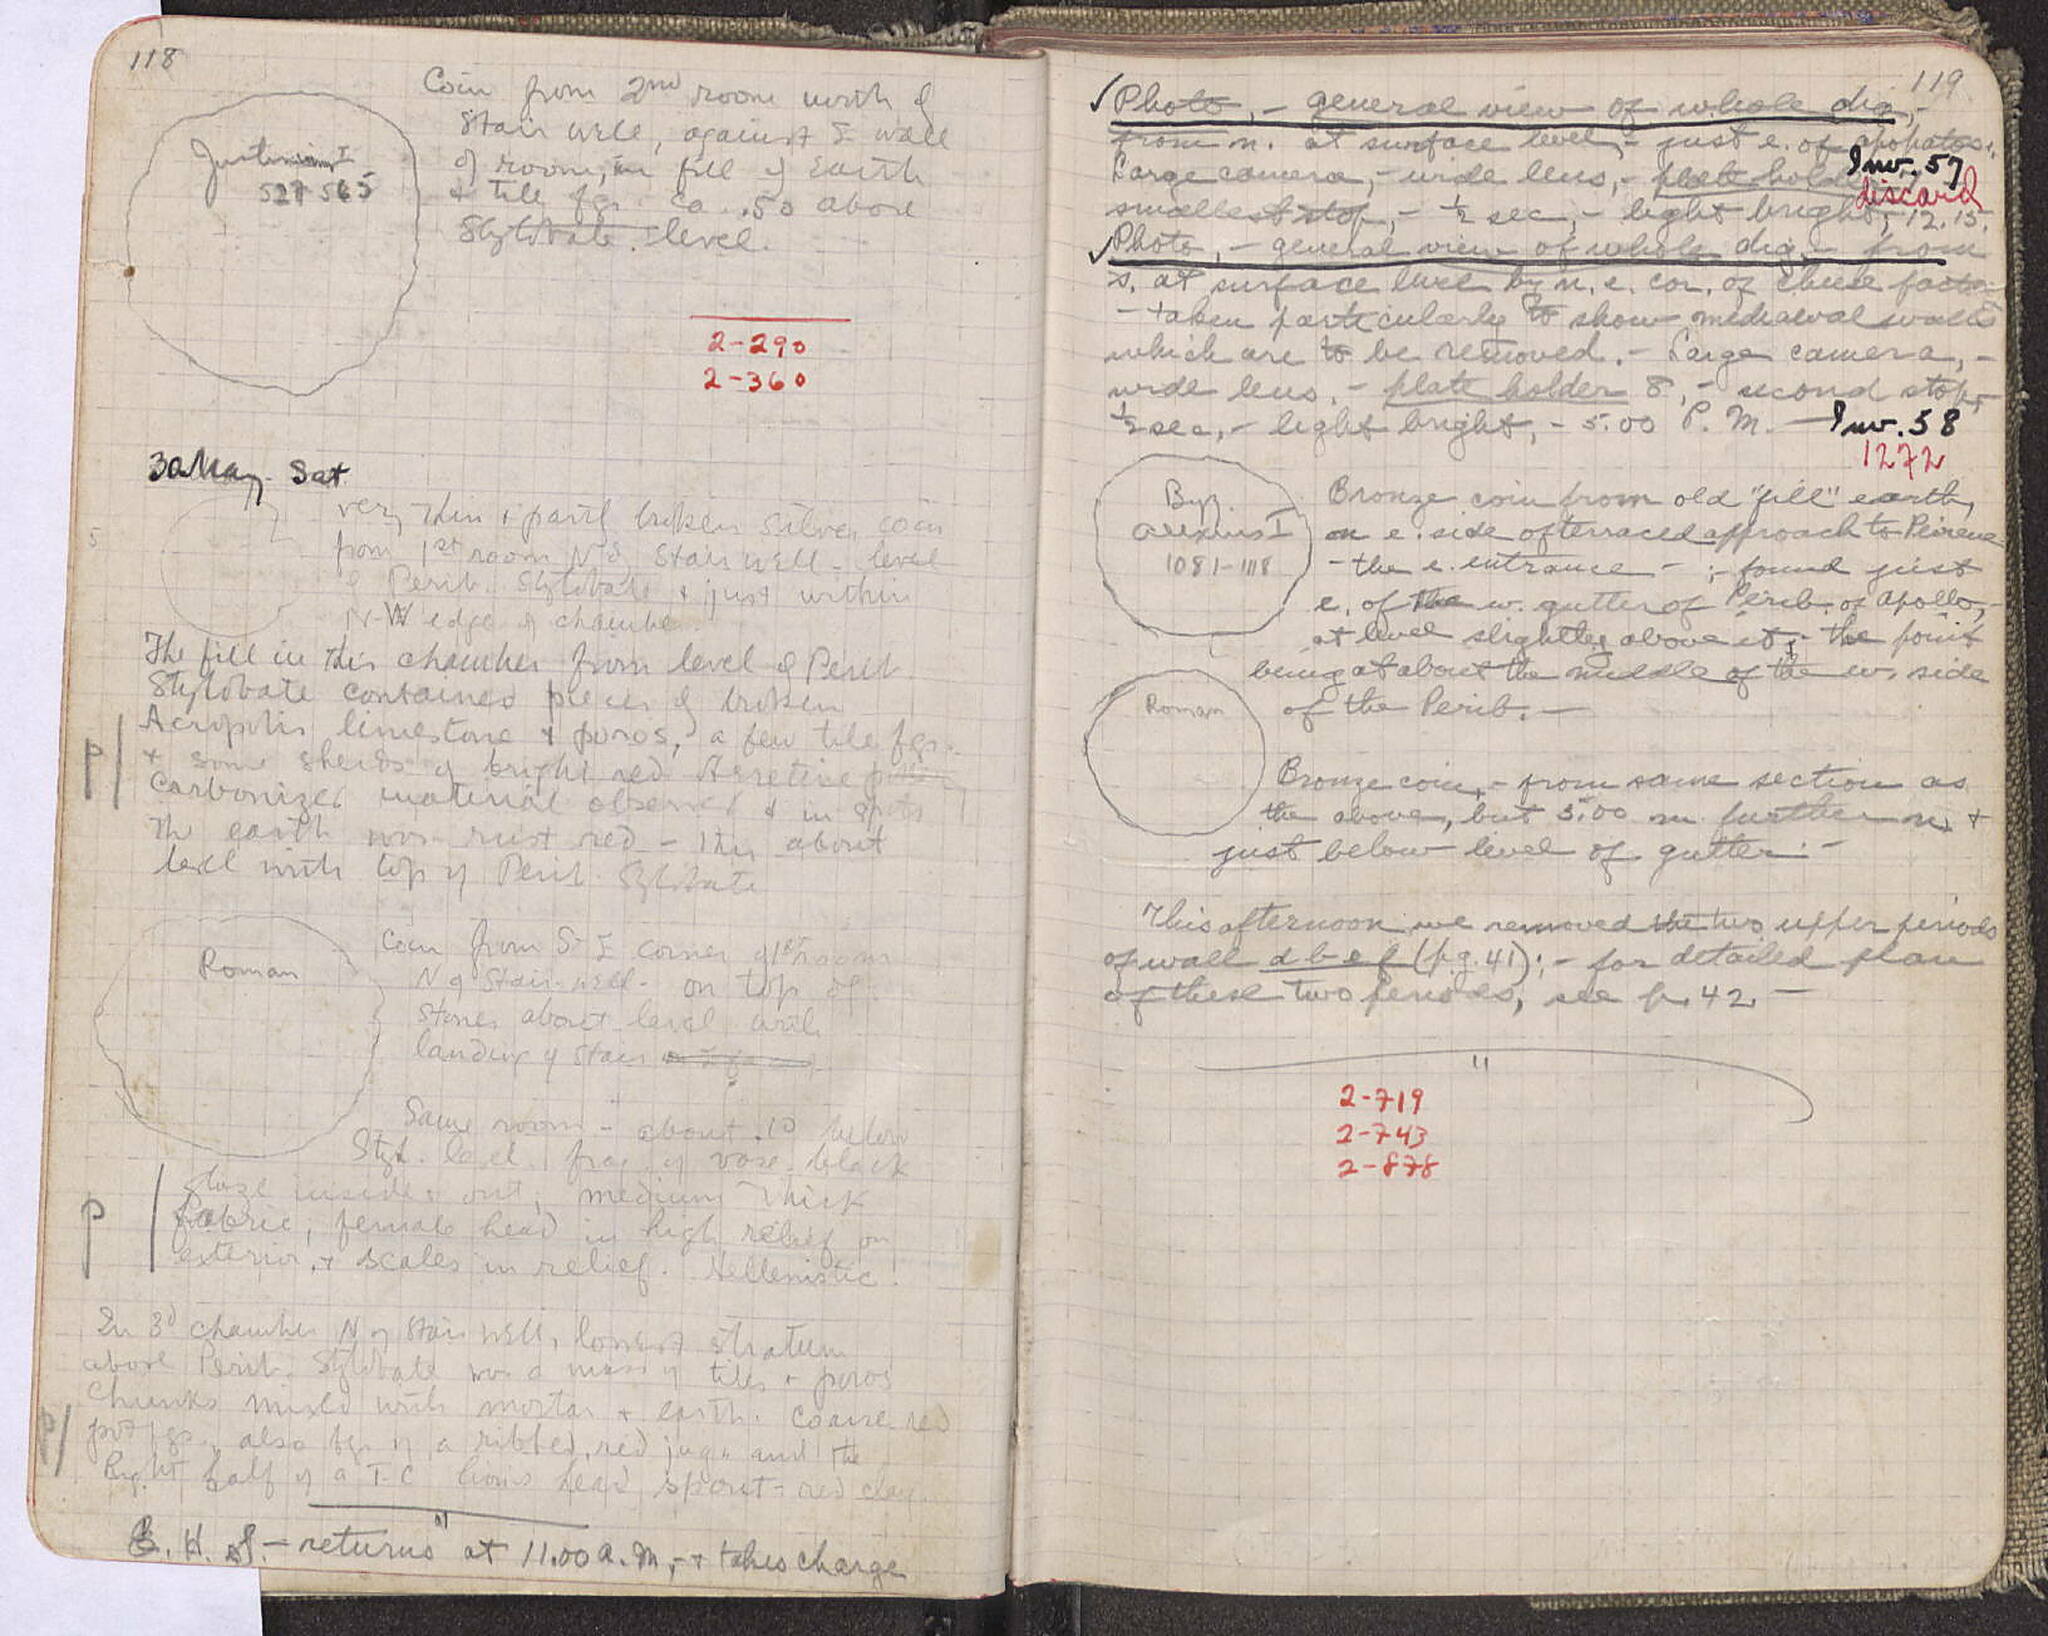 118
Coin from 2nd room north of
Stair well, against E wall
of room, in fill of Earth
+ tile fgs. Ca. .50 above
Stylobate level.
Justinian I
527 565
2-290
2-360
30 May Sat
very thin + partly broken silver coin
from 1st room N of Stair well - level
of Perib. Stylobate + just within
N-W edge of chamber.
5
The fill in this chamber from level of Perib.
Stylobate contained pieces of broken
Acropolis limestone + poros, a few tile fgs.
+ some sherds of bright red Arretine
P
Carbonized material observed + in spots
the earth was rust red - this about
level with top of Perib. Stylobate
Roman
Coin from S-E corner of 1st room
N of Stair-well - on top of
Stones about level with
landing of Stair
Same room - about .10 below
Styl. level, frag of vase. black
glaze inside + out, medium thick
P
fabric, female head in high relief on
exterior, + scales in relief. Hellenistic.
In 3d chamber N of Stair well, lowest stratum
above Perib. Stylobate was a mass of tiles + poros
Chunks mixed with mortar + earth. Coarse red
P
pot fgs. also fgs of a ribbed, red jug, and the
Right half of a T-C lions head spout - red clay.
"
B. H. H. - returns at 11.00 a.m, - + takes charge
119
✓ Photo, - general view of whole dig, -
from n. at surface level, - just e. of apopatos.
Large camera, - wide lens, - plate holder
Inv. 57
discard
smallest stop, - ½ sec, - light bright, 12.15.
✓ Photo, - general view of whole dig, - from
s. at surface level by n. e. cor. of cheese factory
- taken particularly to show mediaeval walls
which are to be removed. - Large camera, -
wide lens, - plate holder 8, - second stop,
½ sec, - light bright, - 5.00 P. M. - Inv. 58
1272
Byz.
Alexius I
1081-1118
Bronze coin from old "fill" earth,
on e. side of terraced approach to Peirene
- the e. entrance - ; - found just
e. of the w. gutter of Perib. of Apollo, -
at level slightly above it, - the point
being at about the middle of the w. side
of the Perib. -
Roman
Bronze coin, - from same section as
the above, but 5.00 m. further n. +
just below level of gutter. -
This afternoon we removed the two upper periods
of wall d b e f (pg. 41); - for detailed plan
of these two periods, see p. 42 -
"
2-719
2-743
2-878